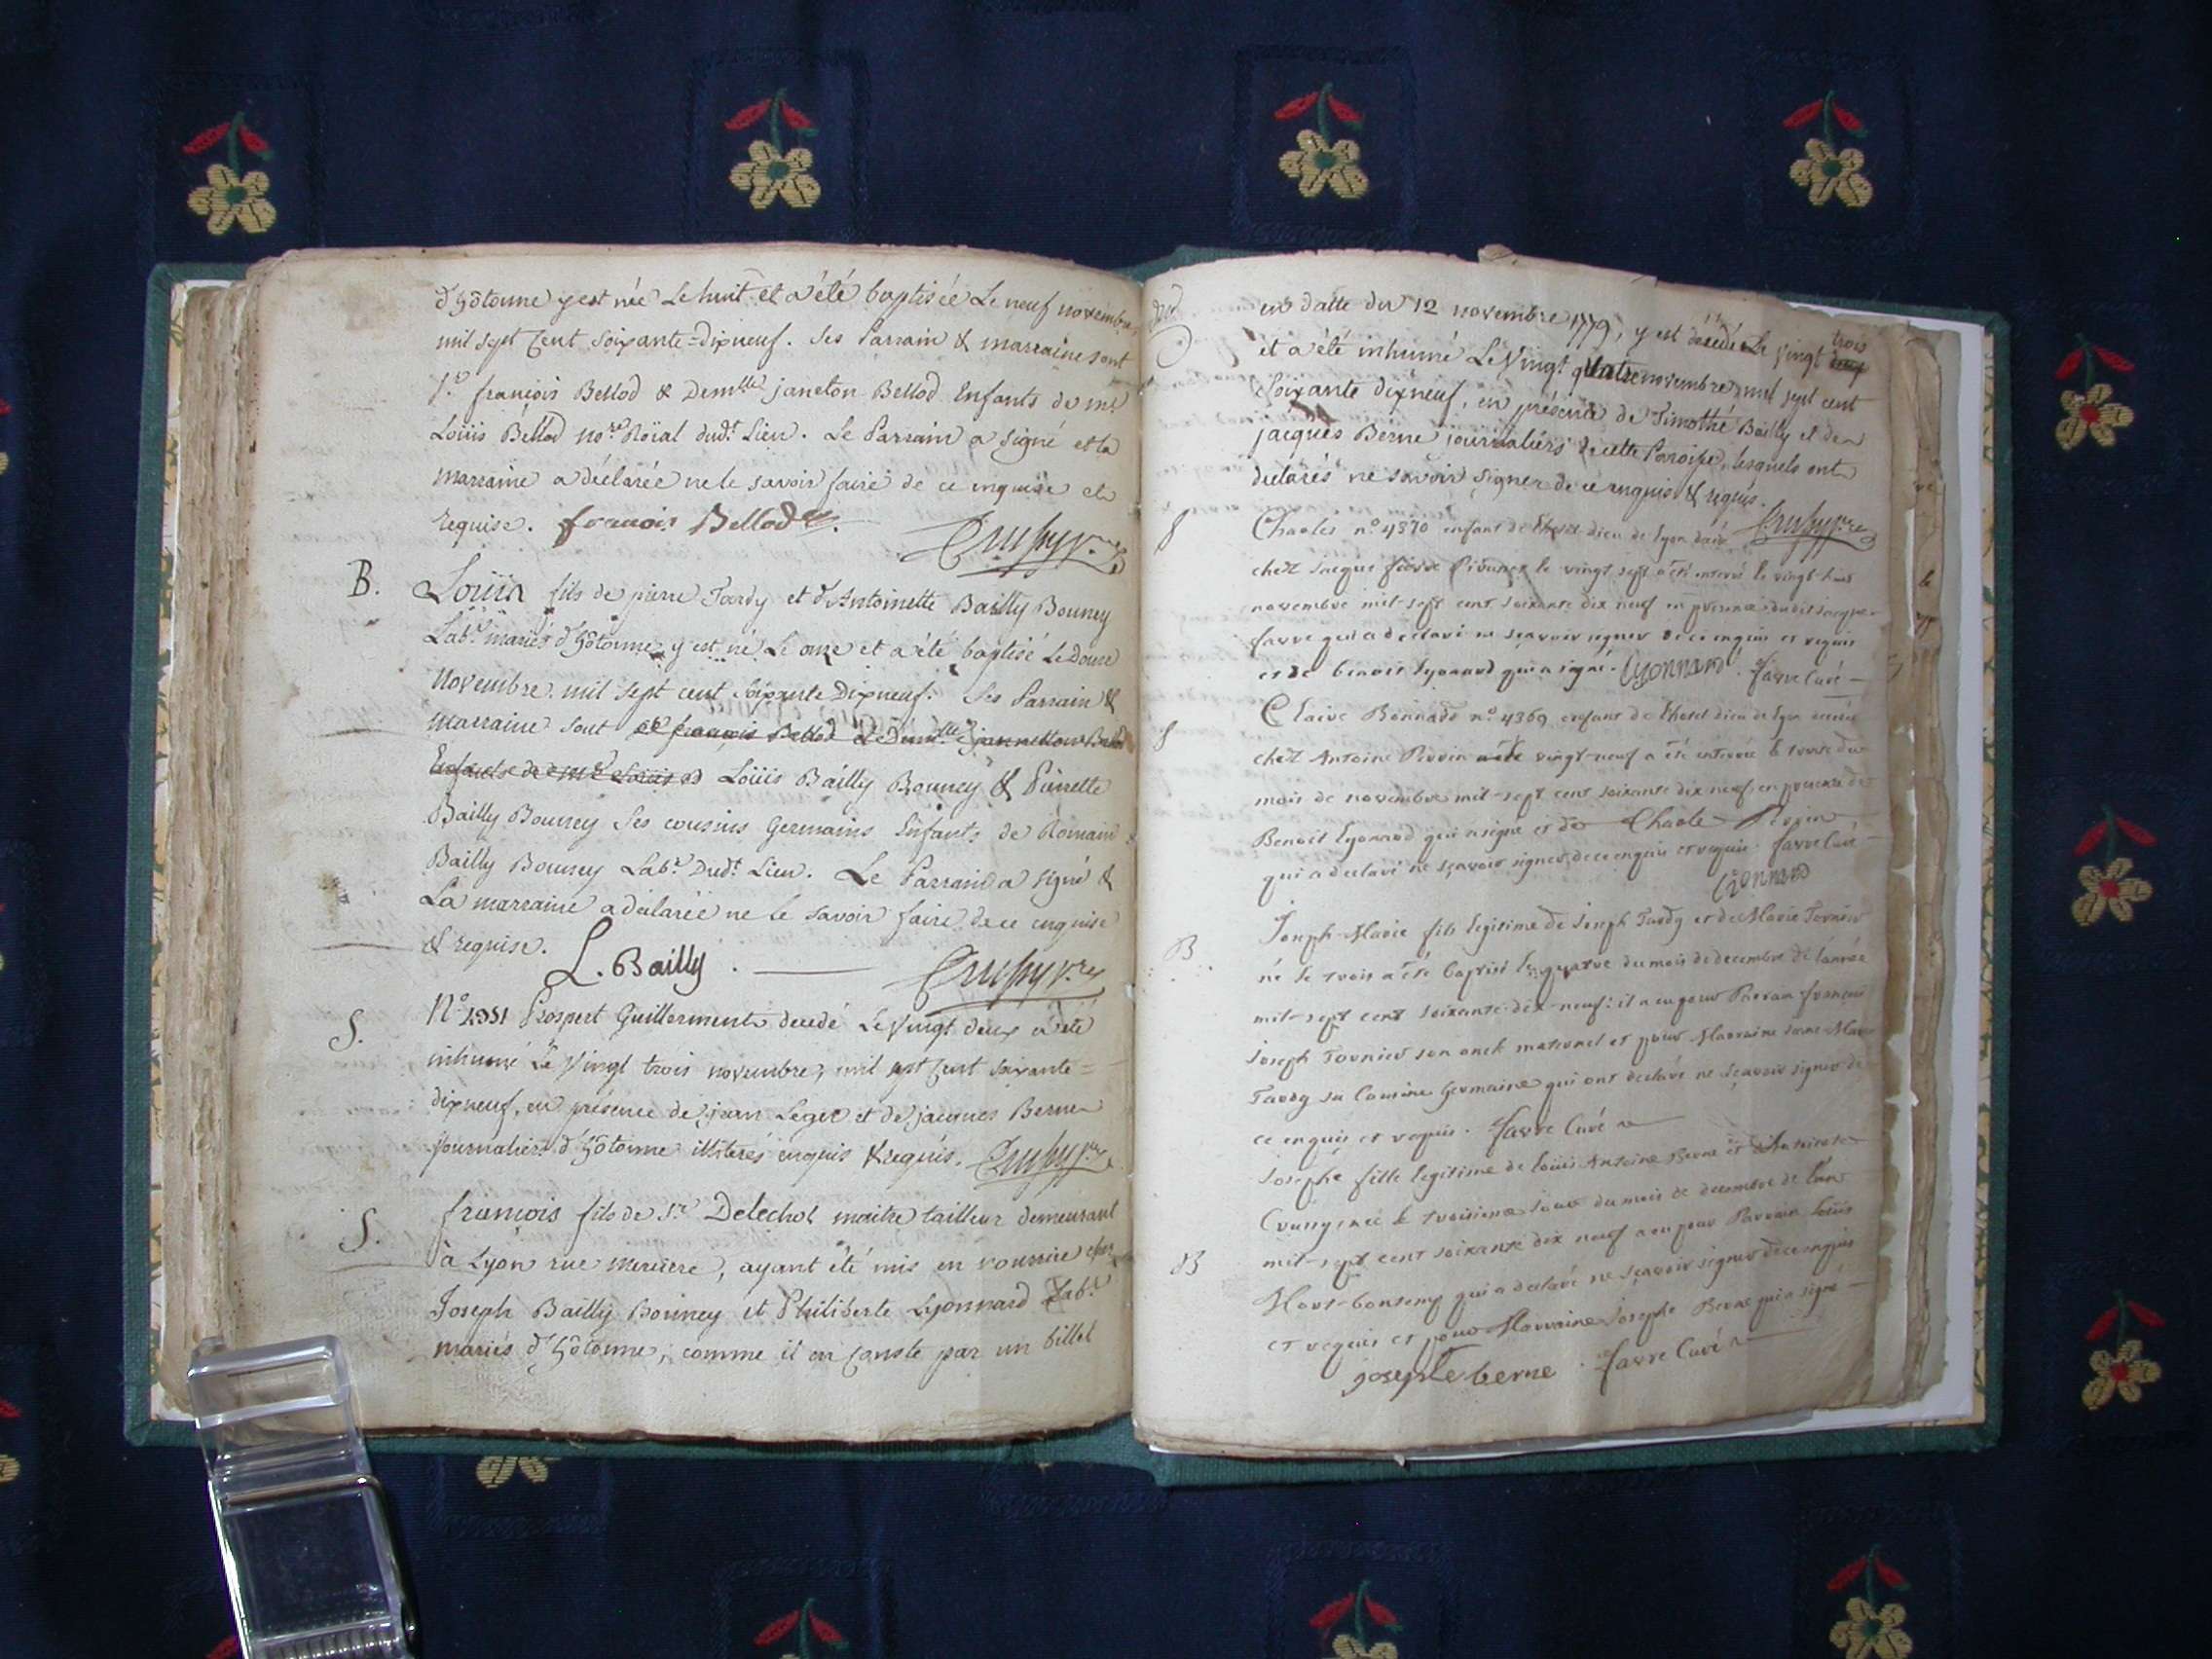 d'hôtonne y est née Le huit et a été baptisée Le neuf novembre
mil sept cent soixante=dixneuf. Ses Parrain & marraine sont
Sr. françois Bellod & Demlle janeton Bellod Enfants de me
Loüis Bellod nore Roïal dudt Lieu. Le Parrain a signé et la
marraine a déclarée ne le savoir faire de ce enquise et
requise. françois Bellod.
B. Loüis fils de pierre Tardy et d'Antoinette Bailly Bouney
Labrs mariés d'hôtonne y est né Le onze et a été baptisé Le Douze
Novembre mil sept cent soixante Dixneuf. Ses Parrain &
marraine sont sr françois Bellod et Demlle jannetton Bellod
Enfants de me Loüis Loüis Bailly Bouney & Pierrette
Bailly Bouney Ses cousins Germains Enfants de Romain
Bailly Bouney Labr Dudt Lieu. Le Parrain a signé &
La marraine a déclarée ne le savoir faire de ce enquise
& requise. L. Bailly.
S. No Prospert Guillerment decedé Le Vingt deux a été
inhumé Le Vingt trois novembre, mil sept cent soixante=
dixneuf, en présence de jean Leger et de jacques Berne
journaliers d'hôtonne illiterés enquis & requis.
S. françois fils de Sr Delechol maitre tailleur demeurant
à Lyon rue merciere, ayant été mis en nourrice chez
Joseph Bailly Bouney et Philiberte Lyonnard Labrs
mariés d'hôtonne, comme il en conste par un billet
en datte du 12 novembre 1779, y est décédé Le vingt trois
et a été inhumé Le Vingt quatre novembre mil sept cent
soixante dixneuf, en présence de Timothé Bailly et de
jacques Berne journaliers de cette Paroisse, lesquels ont
declarés ne savoir signer de ce enquis & requis.
S Charles no 4370 enfant de l'hotel dieu de lyon
chez Jacque favre le vingt sept a été enterré le vingt-huit
novembre mil-sept cent soixante dix neuf en presence dudit jacque
favre qui a declaré ne sçavoir signer de ce enquis et requis
et de benoit lyonard qui a signé. Lyonnard. favre Curé
S Claire Bonnade no. 4369 enfant de l'hotel dieu de lyon
chez Antoine Perrin le vingt-neuf a été enterrée le trente du
mois de novembre mil-sept cent soixante dix neuf en presence de
Benoit lyonnard qui a signé et de Charle Perrin
qui a declaré ne sçavoir signer de ce enquis et requis. favre Curé
Lyonnard
B Joseph-Marie fils legitime de Joseph Tardy et de Marie Tornier
né le trois a été baptisé le quatre du mois de decembre de l'année
mil-sept cent soixante-dix-neuf: il a eu pour Parrain françois
Joseph Tournier son oncle maternel et pour Marraine
Tardy sa Cousine Germaine qui ont declaré ne sçavoir signer de
ce enquis et requis. favre Curé
B Josephe fille legitime de Loüis Antoine Berne et Antoinete
née le troisieme jour du mois de decembre de l'an
mil-sept cent soixante dix neuf a eu pour Parrain Loüis
Mont-bontemp qui a declaré ne sçavoir signer de ce enquis
et requis et pour Marraine Josephe Berne qui a signé
josephe berne. favre Curé